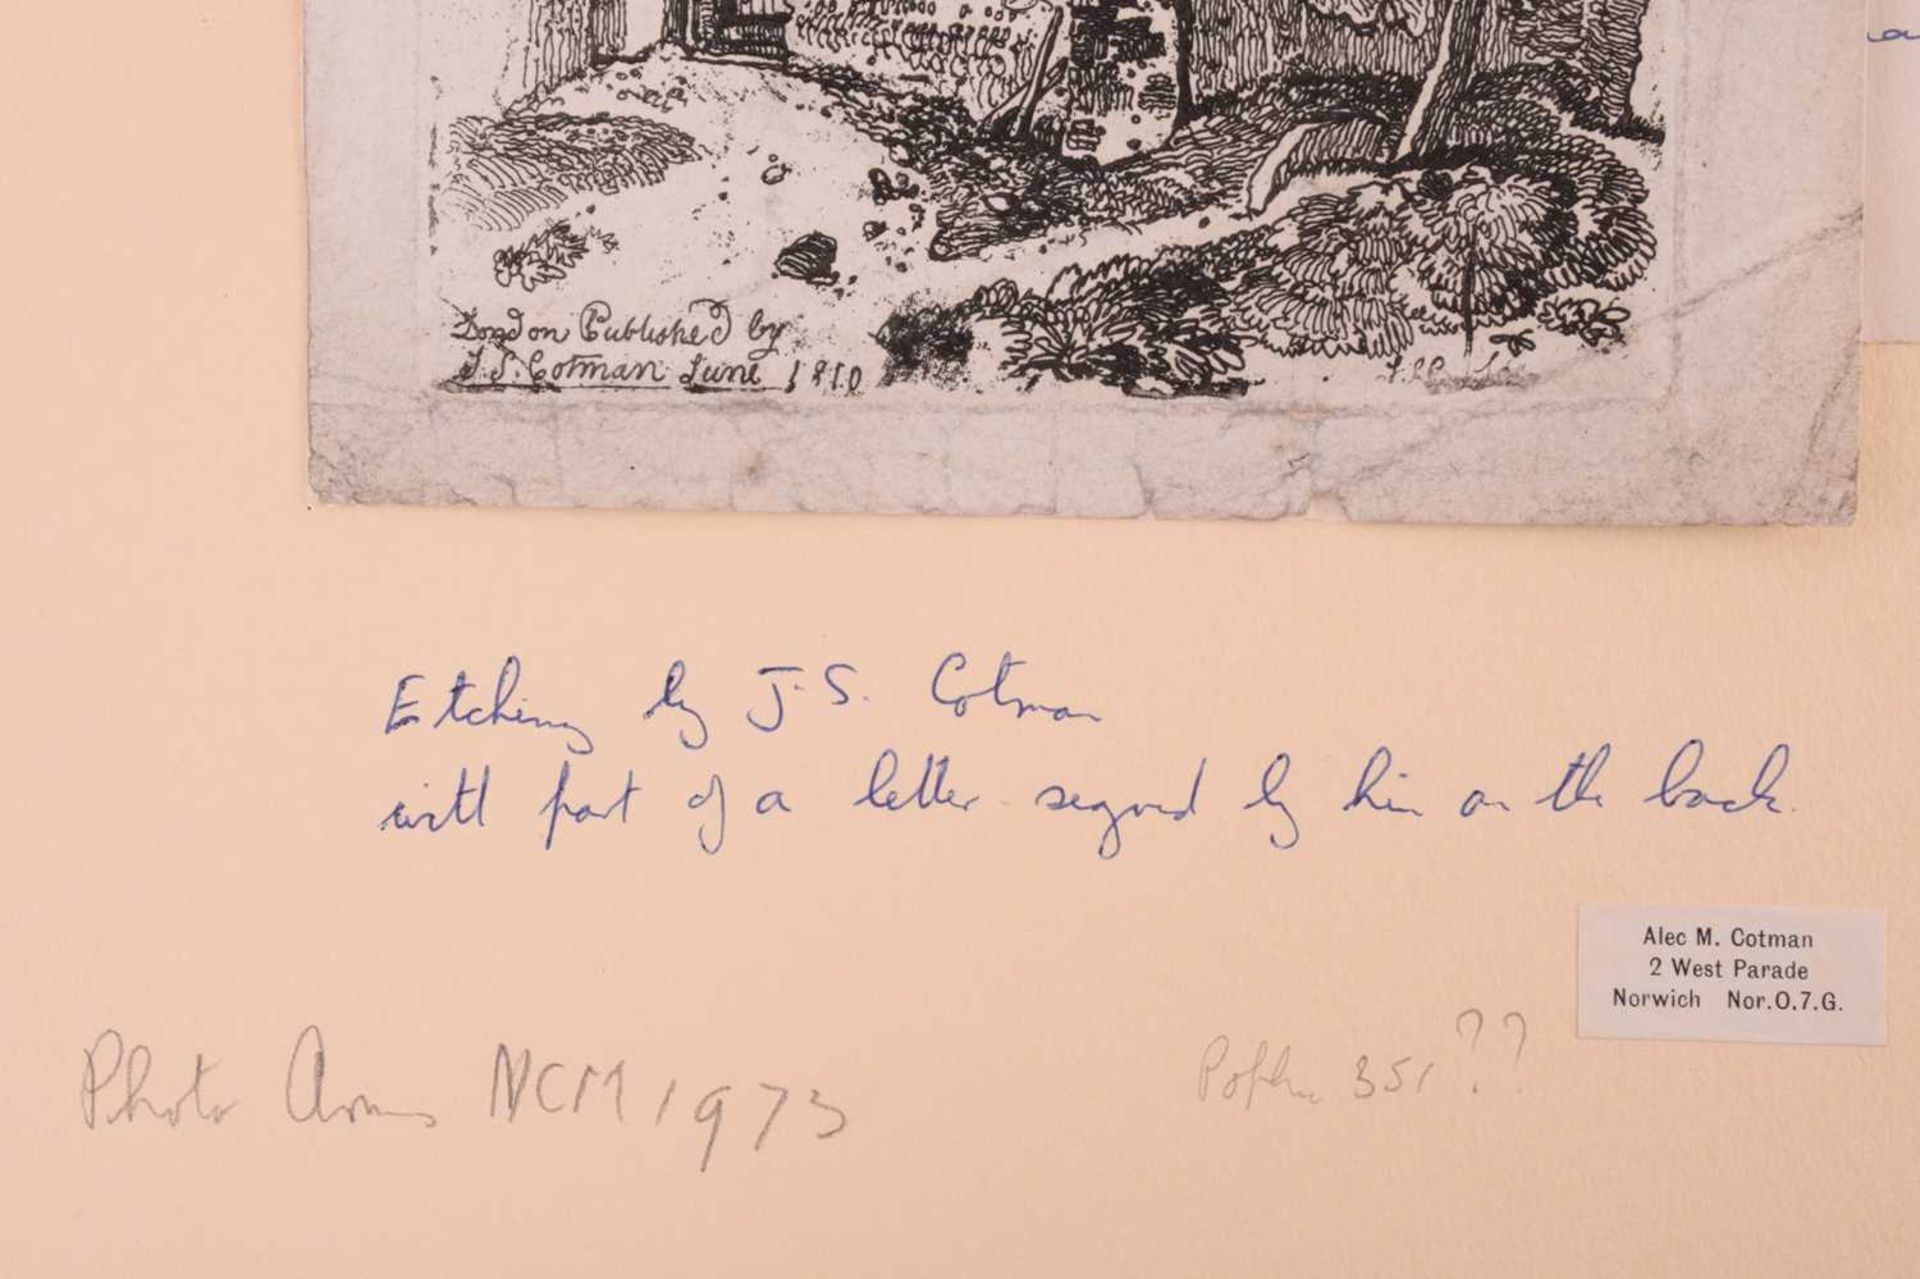 London Published by
J. S. Cotman June 1810
Etching by J. S. Cotman
with part of a letter signed by him on the back.
Alec M. Cotman
2 West Parade
Norwich Nor.O.7.G.
Photo NCM 1973
351 ??